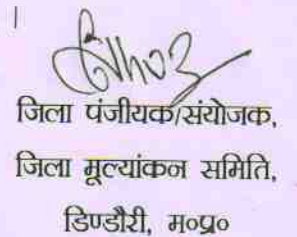 जिला पंजीयक/संयोजक,
जिला मूल्यांकन समिति,
डिण्डौरी, म०प्र०